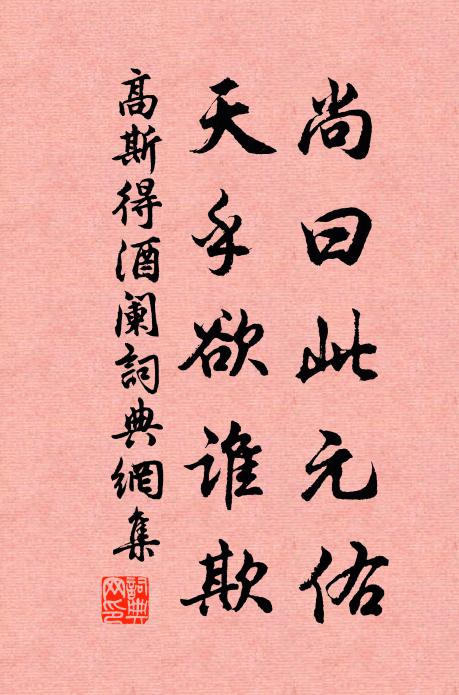 尚曰此元佑
天乎欲谁欺
高斯得酒阑詞典網集
詞典
网印